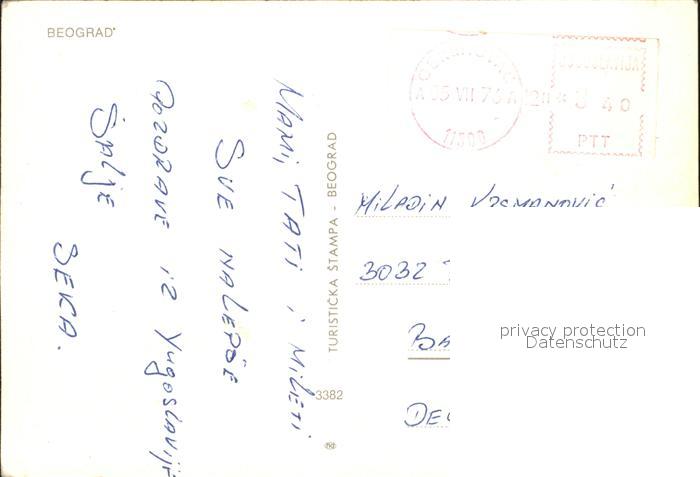 BEOGRAD
MAMI, TATI i MiLETi
SVE NAJLEPŠE
POZDRAVE iZ Yugoslavije
ŠALJE
SEKA.
TURISTIČKA ŠTAMPA - BEOGRAD
3382
05 VII 76
11308
JUGOSLAVIJA
PTT
MiLADiN
3032
BA
DE
privacy protection
Datenschutz